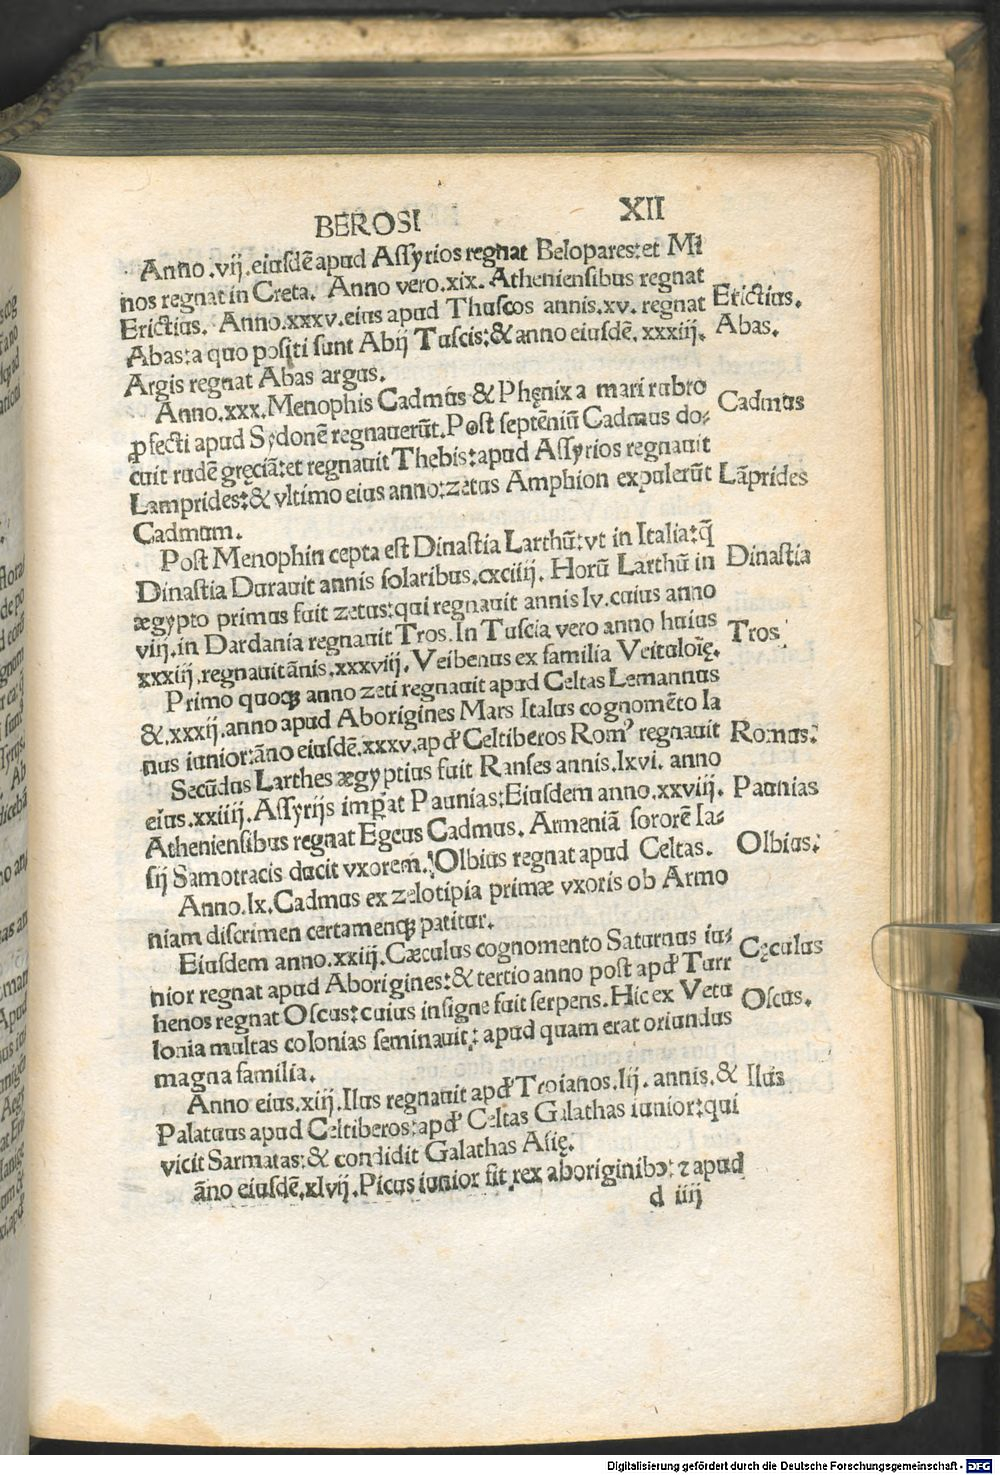 BEROSI XII
Anno .vij. eiusdē apud Assyrios regnat Belopares: et Mi
nos regnat in Creta. Anno vero .xix. Atheniensibus regnat
Erictius. Anno .xxxv. eius apud Thuscos annis .xv. regnat
Erictius.
Abas: a quo positi sunt Abij Tuscis: & anno eiusdē .xxxiij.
Abas.
Argis regnat Abas argus.
Anno .xxx. Menophis Cadmus & Phęnix a mari rubro
Cadmus
ꝓfecti apud Sydonē regnauerūt. Post septēniū Cadmus do⸗
cuit rudē gręciā: et regnauit Thebis: apud Assyrios regnauit
Lamprides: & vltimo eius anno: zetus Amphion expulerūt
Lāprides
Cadmum.
Post Menophin cepta est Dinastia Larthū: vt in Italia: q̄
Dinastia Durauit annis solaribus .cxciiij. Horū Larthū in
Dinastia
ægypto primus fuit zetus: qui regnauit annis lv. cuius anno
viij. in Dardania regnauit Tros. In Tuscia vero anno huius
Tros
xxxiij. regnauit ānis .xxxviij. Veibenus ex familia Veituloię.
Primo quoqꝫ anno zeti regnauit apud Celtas Lemannus
&.xxxij. anno apud Aborigines Mars Italus cognomēto Ia
nus iunior: āno eiusdē .xxxv. apđ Celtiberos Romꝰ regnauit
Romus:
Secūdus Larthes ægyptius fuit Ranses annis .lxvi. anno
eius .xxiiij. Assyrijs imꝑat Paunias: Eiusdem anno .xxviij.
Paunias
Atheniensibus regnat Egeus Cadmus. Armeniā sororē Ia⸗
sij Samotracis ducit vxorem. Olbius regnat apud Celtas.
Olbius:
Anno .lx. Cadmus ex zelotipia primæ vxoris ob Armo
niam discrimen certamenqꝫ patitur.
Eiusdem anno .xxiij. Cæculus cognomento Saturnus iu⸗
Cęculus
nior regnat apud Aborigines: & tertio anno post apđ Turr
henos regnat Oscus: cuius insigne fuit serpens. Hic ex Vetu
Oscus.
lonia multas colonias seminauit: apud quam erat oriundus
magna familia.
Anno eius .xiij. Ilus regnauit apđ Troianos .lij. annis. &
Ilus
Palatuus apud Celtiberos: apđ Celtas Galathas iunior: qui
vicit Sarmatas: & condidit Galathas Asię.
āno eiusdē .xlvij. Picus iunior fit rex aboriginibꝰ: ⁊ apud
d iiij
Digitalisierung gefördert durch die Deutsche Forschungsgemeinschaft - DFG